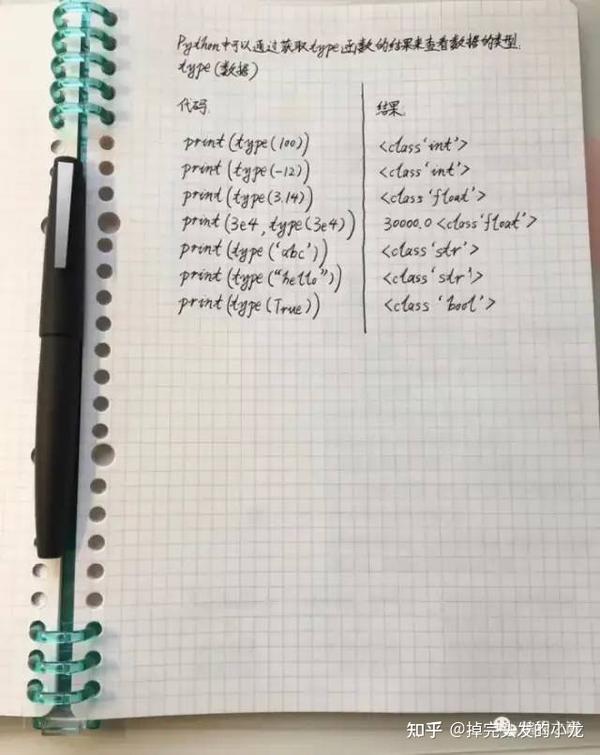 Python中可以通过获取type函数的结果来查看数据的类型.
type(数据)
代码 结果
print(type(100)) <class'int'>
print(type(-12)) <class'int'>
print(type(3.14)) <class'float'>
print(3e4,type(3e4)) 30000.0 <class'float'>
print(type('abc')) <class'str'>
print(type("hello")) <class'str'>
print(type(True)) <class 'bool'>
知乎 @掉完头发的小龙